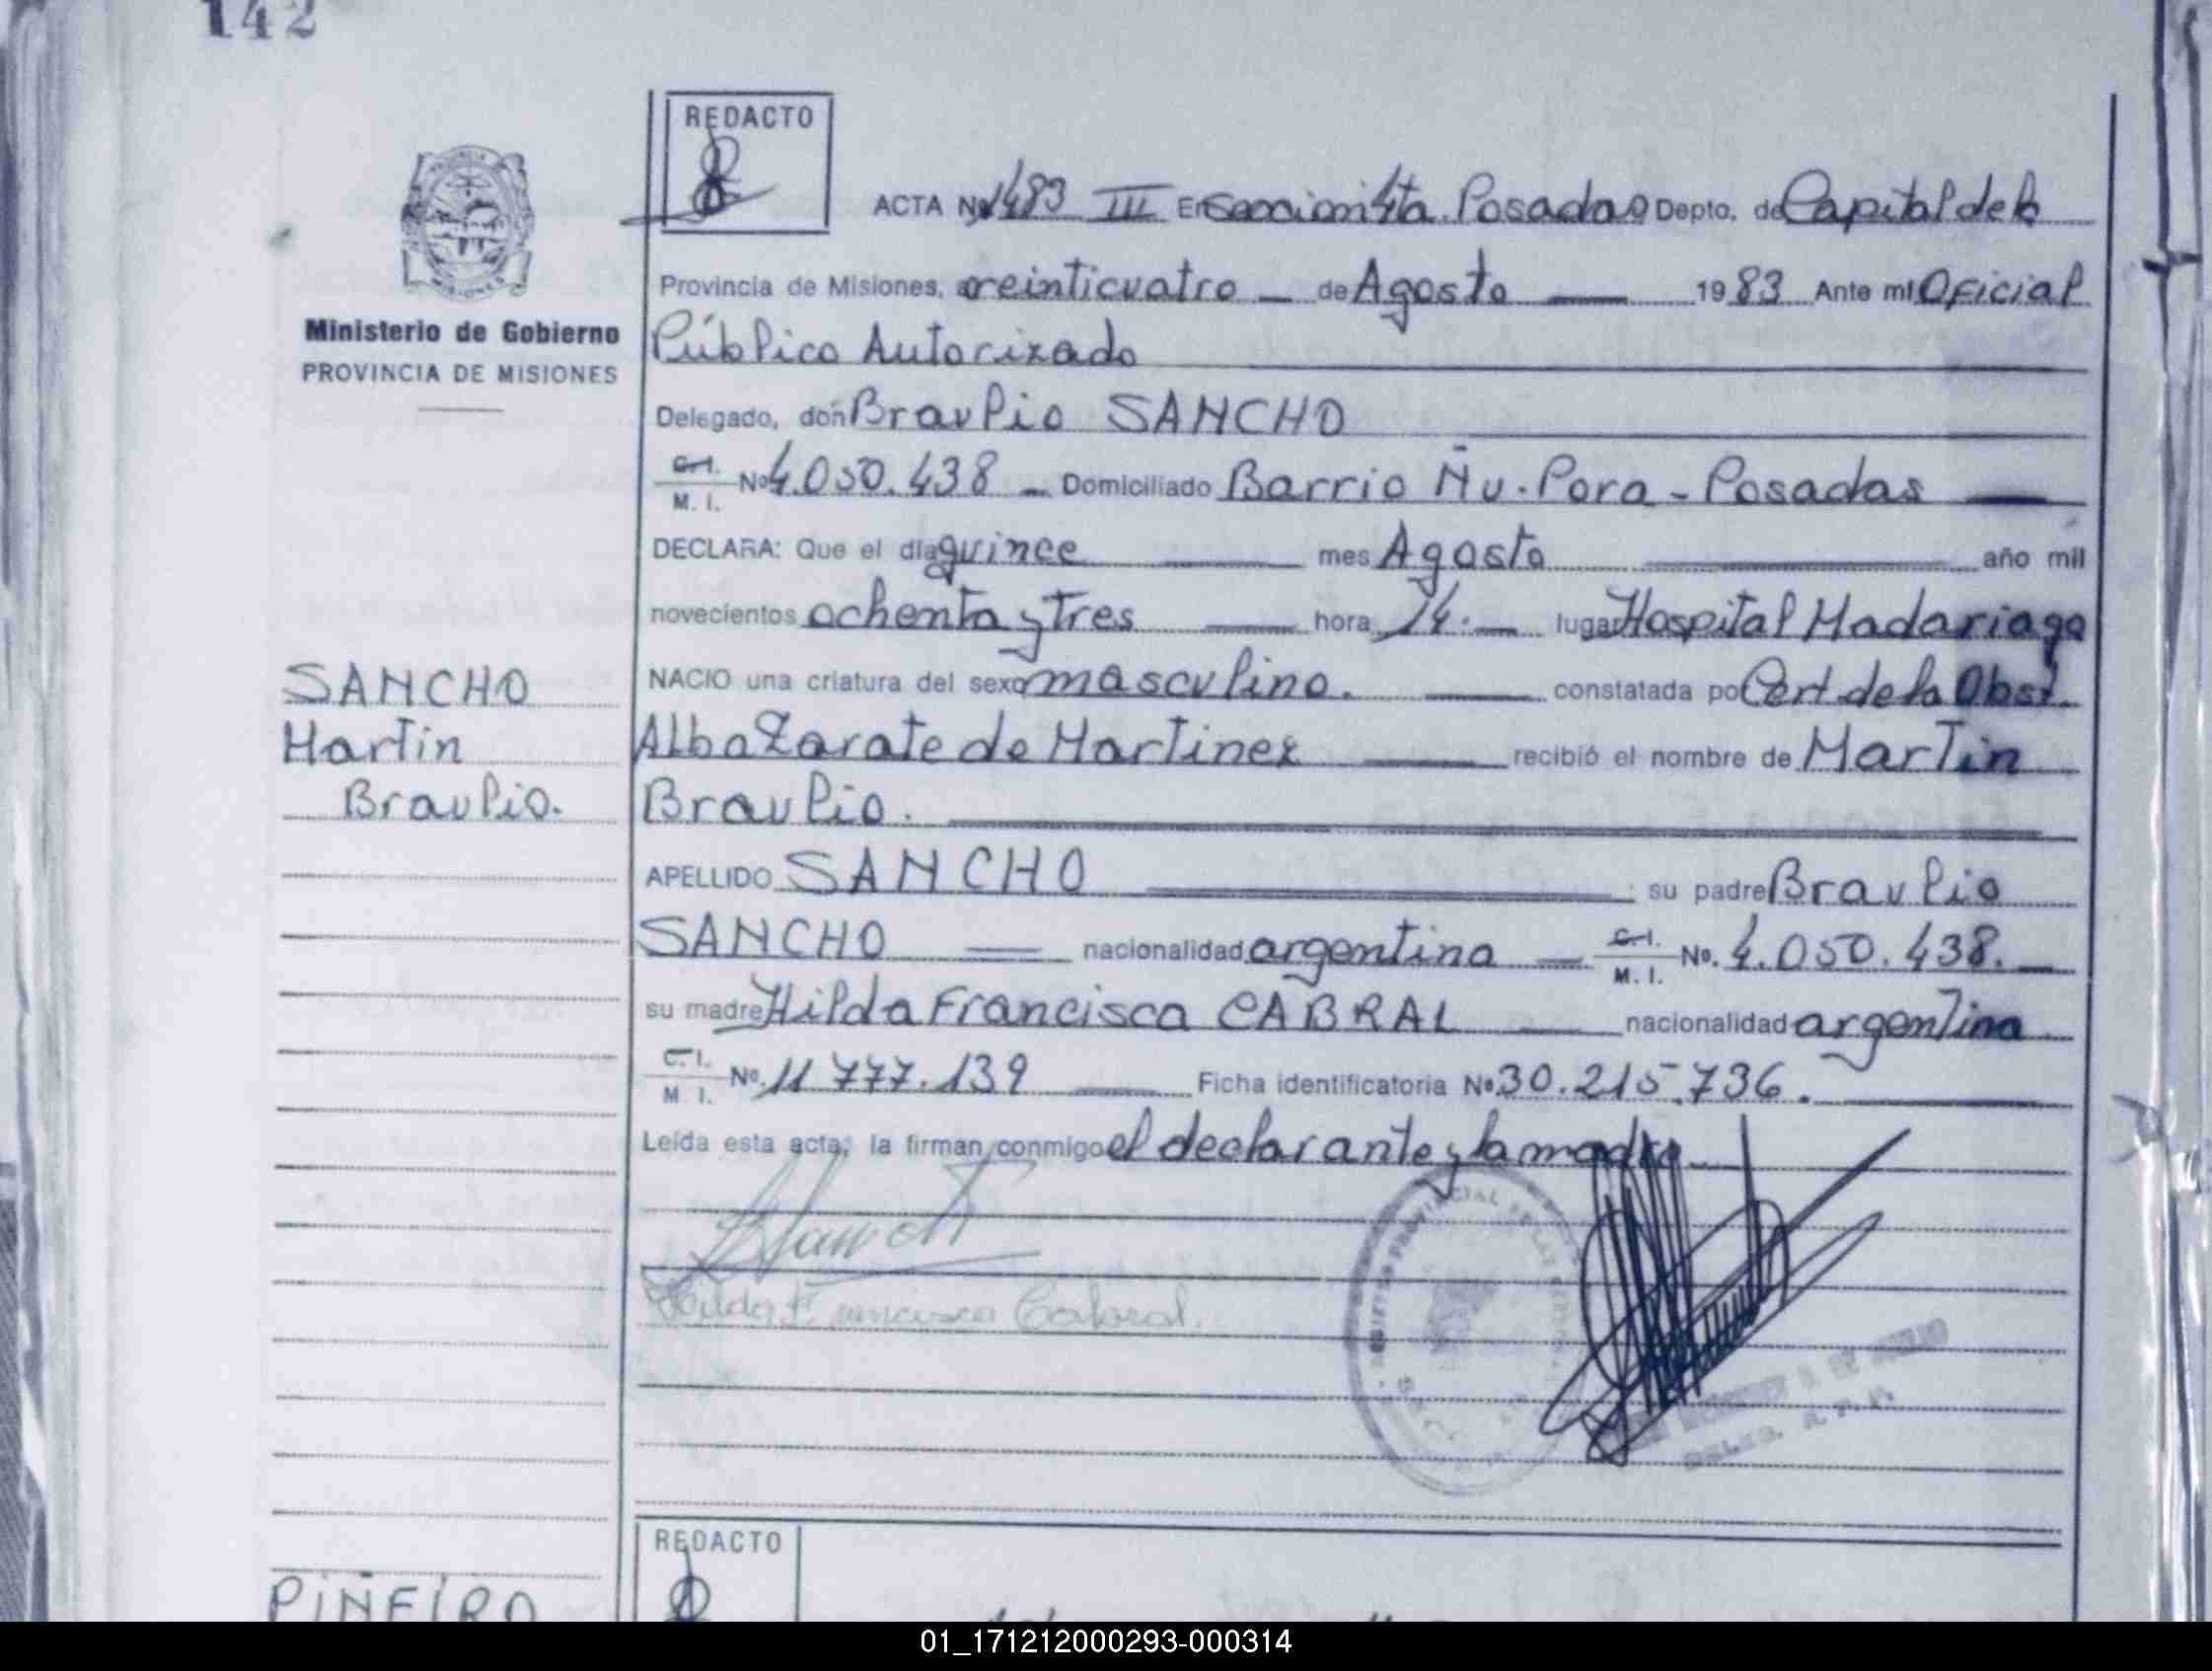 142
REDACTO
ACTA No 1483 III En Seccion 4ta. Posadas Depto. de Capital de la
Provincia de Misiones, a veinticuatro — de Agosto — 1983 Ante mi Oficial
Ministerio de Gobierno
PROVINCIA DE MISIONES
Público Autorizado
Delegado, don Braulio SANCHO
C.I. M. I. No 4.050.438 — Domiciliado Barrio Ñu-Pora - Posadas —
DECLARA: Que el día quince — mes Agosto — año mil
novecientos ochenta y Tres — hora 14.— lugar Hospital Madariaga
NACIO una criatura del sexo masculino. — constatada por Cert de la Obst.
SANCHO
Martin
Braulio.
Alba Zarate de Martinez — recibió el nombre de Martin
Braulio. —
APELLIDO SANCHO — ; su padre Braulio
SANCHO = nacionalidad argentina — C.I. M. I. No. 4.050.438. —
su madre Hilda Francisca CABRAL — nacionalidad argentina
C. I. M. I. No. 11 777.139 — Ficha identificatoria No 30.215.736. —
Leída esta acta, la firman conmigo el declarante y la madre
Hilda Francisca Cabral.
REDACTO
PIÑEIRO
01_171212000293-000314